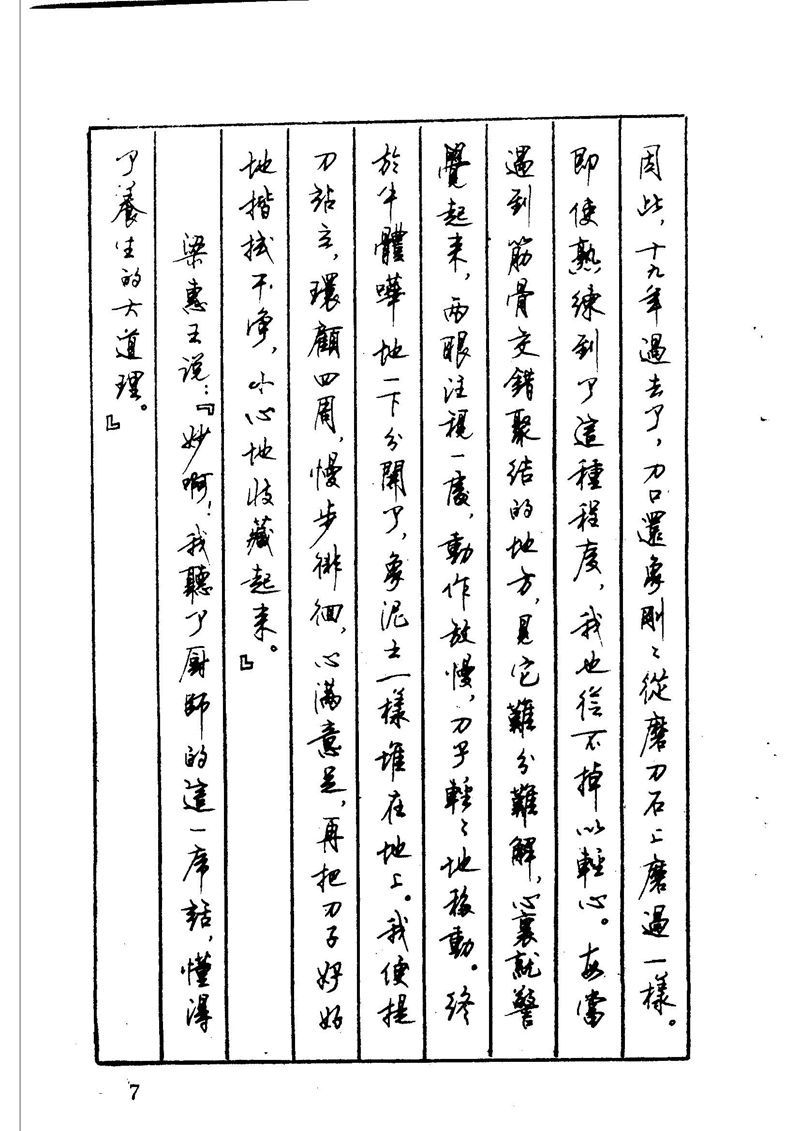 因此，十九年過去了，刀口還象剛〻從磨刀石上磨過一樣。
即使熟練到了這種程度，我也從不掉以輕心。每當
遇到筋骨交錯聚结的地方，見它難分難解，心裏就警
覺起来，两眼注視一處，動作放慢，刀子輕〻地移動。终
於牛體嘩地一下分開了，象泥土一樣堆在地上。我便提
刀站立，環顧四周，慢步徘徊，心滿意足，再把刀子好好
地揩拭干净，小心地收藏起来。』
梁惠王说：『妙啊！我聽了厨師的這一席話，懂得
了養生的大道理。』
7